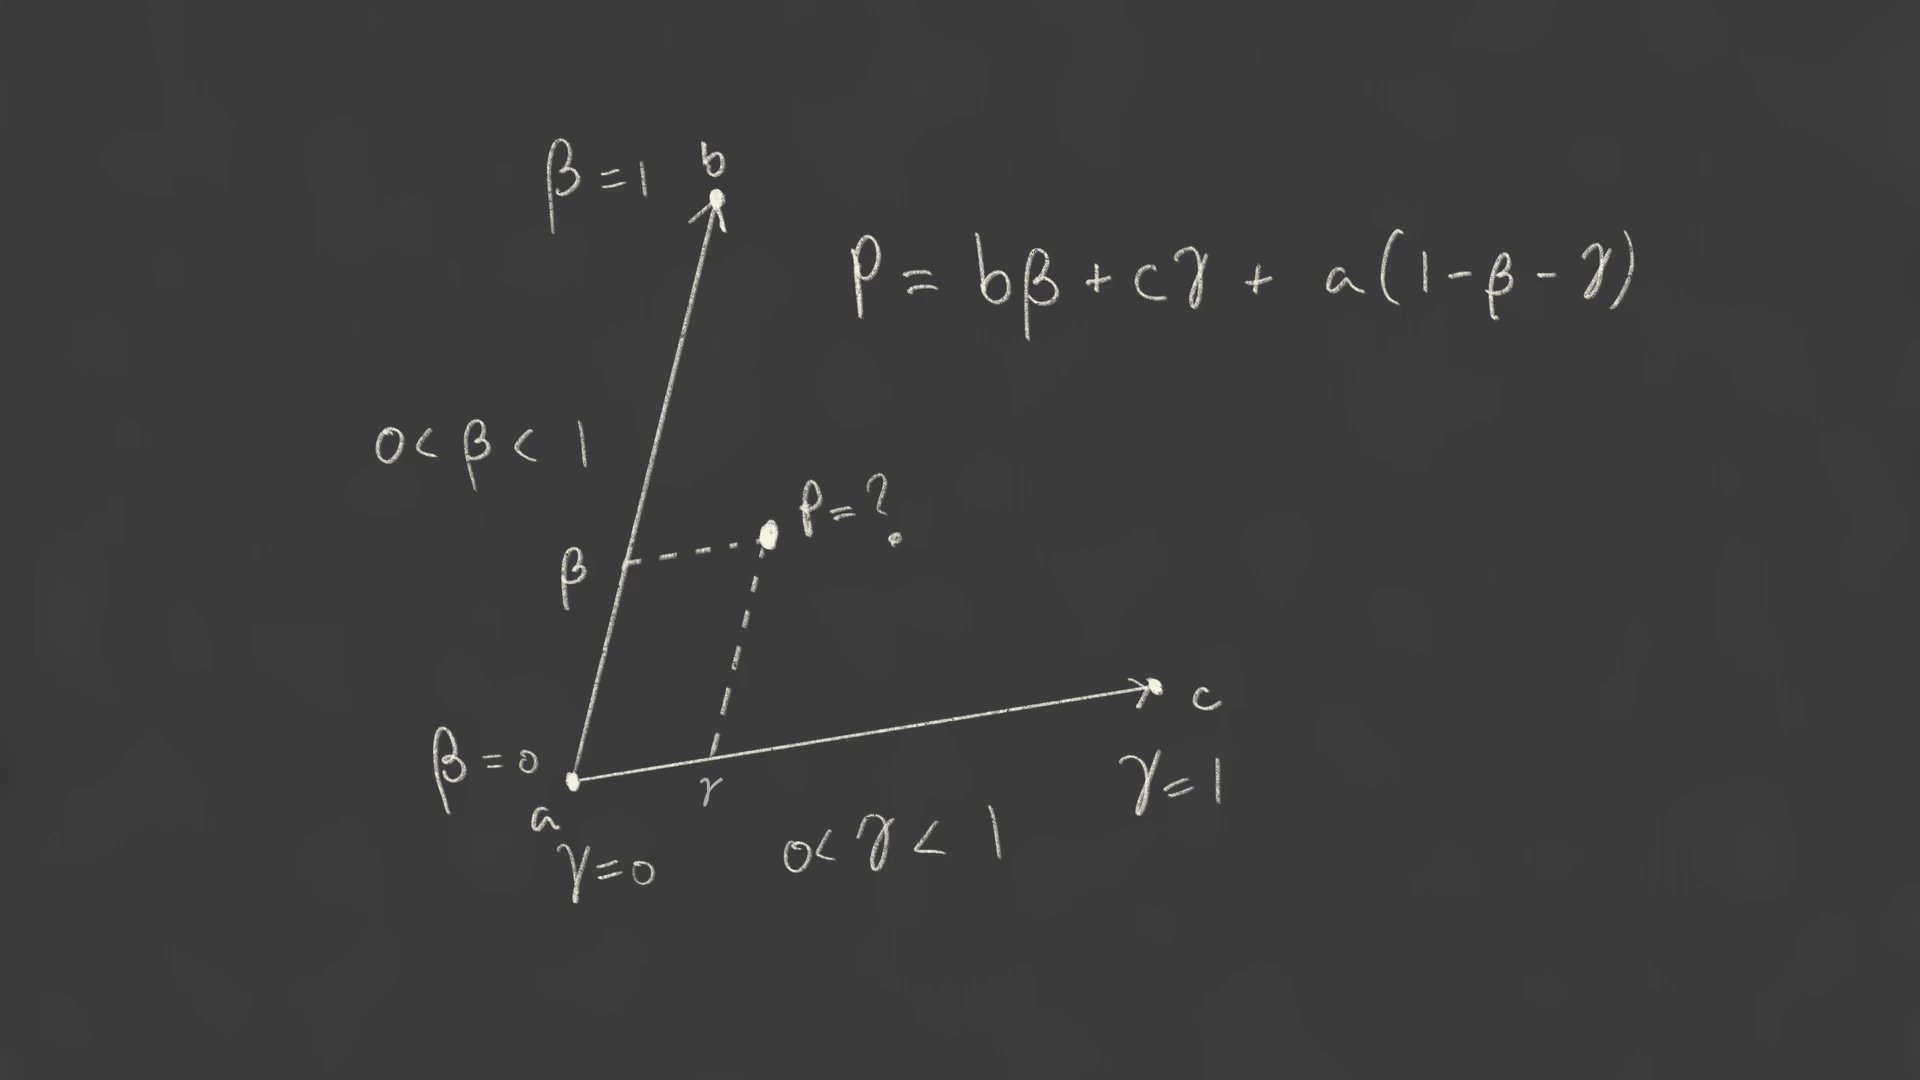 β = 1
b
P = bβ + cγ + a(1 - β - γ)
0 < β < 1
P = ?
β
c
β = 0
γ
γ = 1
a
0 < γ < 1
γ = 0